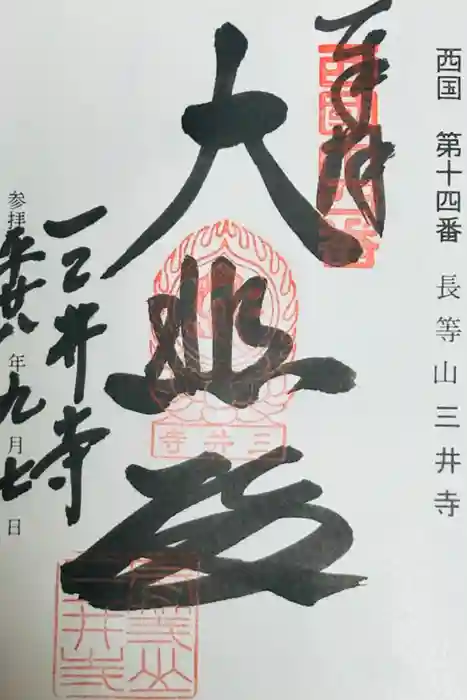 西国 第十四番 長等山三井寺
奉拝
大悲殿
三井寺
三井寺
参拝 平廿八年九月七日